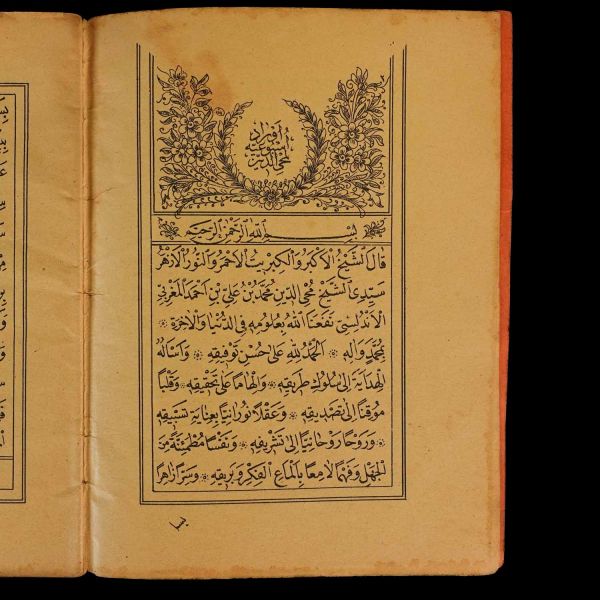 أوراد
أسبوعية
محي الدين
بسم الله الرحمن الرحيم
قال الشيخ الأكبر والكبريت الأحمر والنور الأزهر
سيدي الشيخ محي الدين محمد بن علي بن أحمد المغربي
الأندلسي نفعنا الله بعلومه في الدنيا والآخرة
بمحمد وآله * الحمد لله على حسن توفيقه * وأسأله
الهداية إلى سلوك طريقه * وإلهاما على تحقيقه * وقلبا
موقنا إلى تصديقه * وعقلا نورانيا بعناية تسبيقه
* وروحا روحانيا إلى تشريفه * ونفسا مطمئنة من
الجهل وفهما لامعا بإلماع الفكر وبريقه * وسرا زاهرا